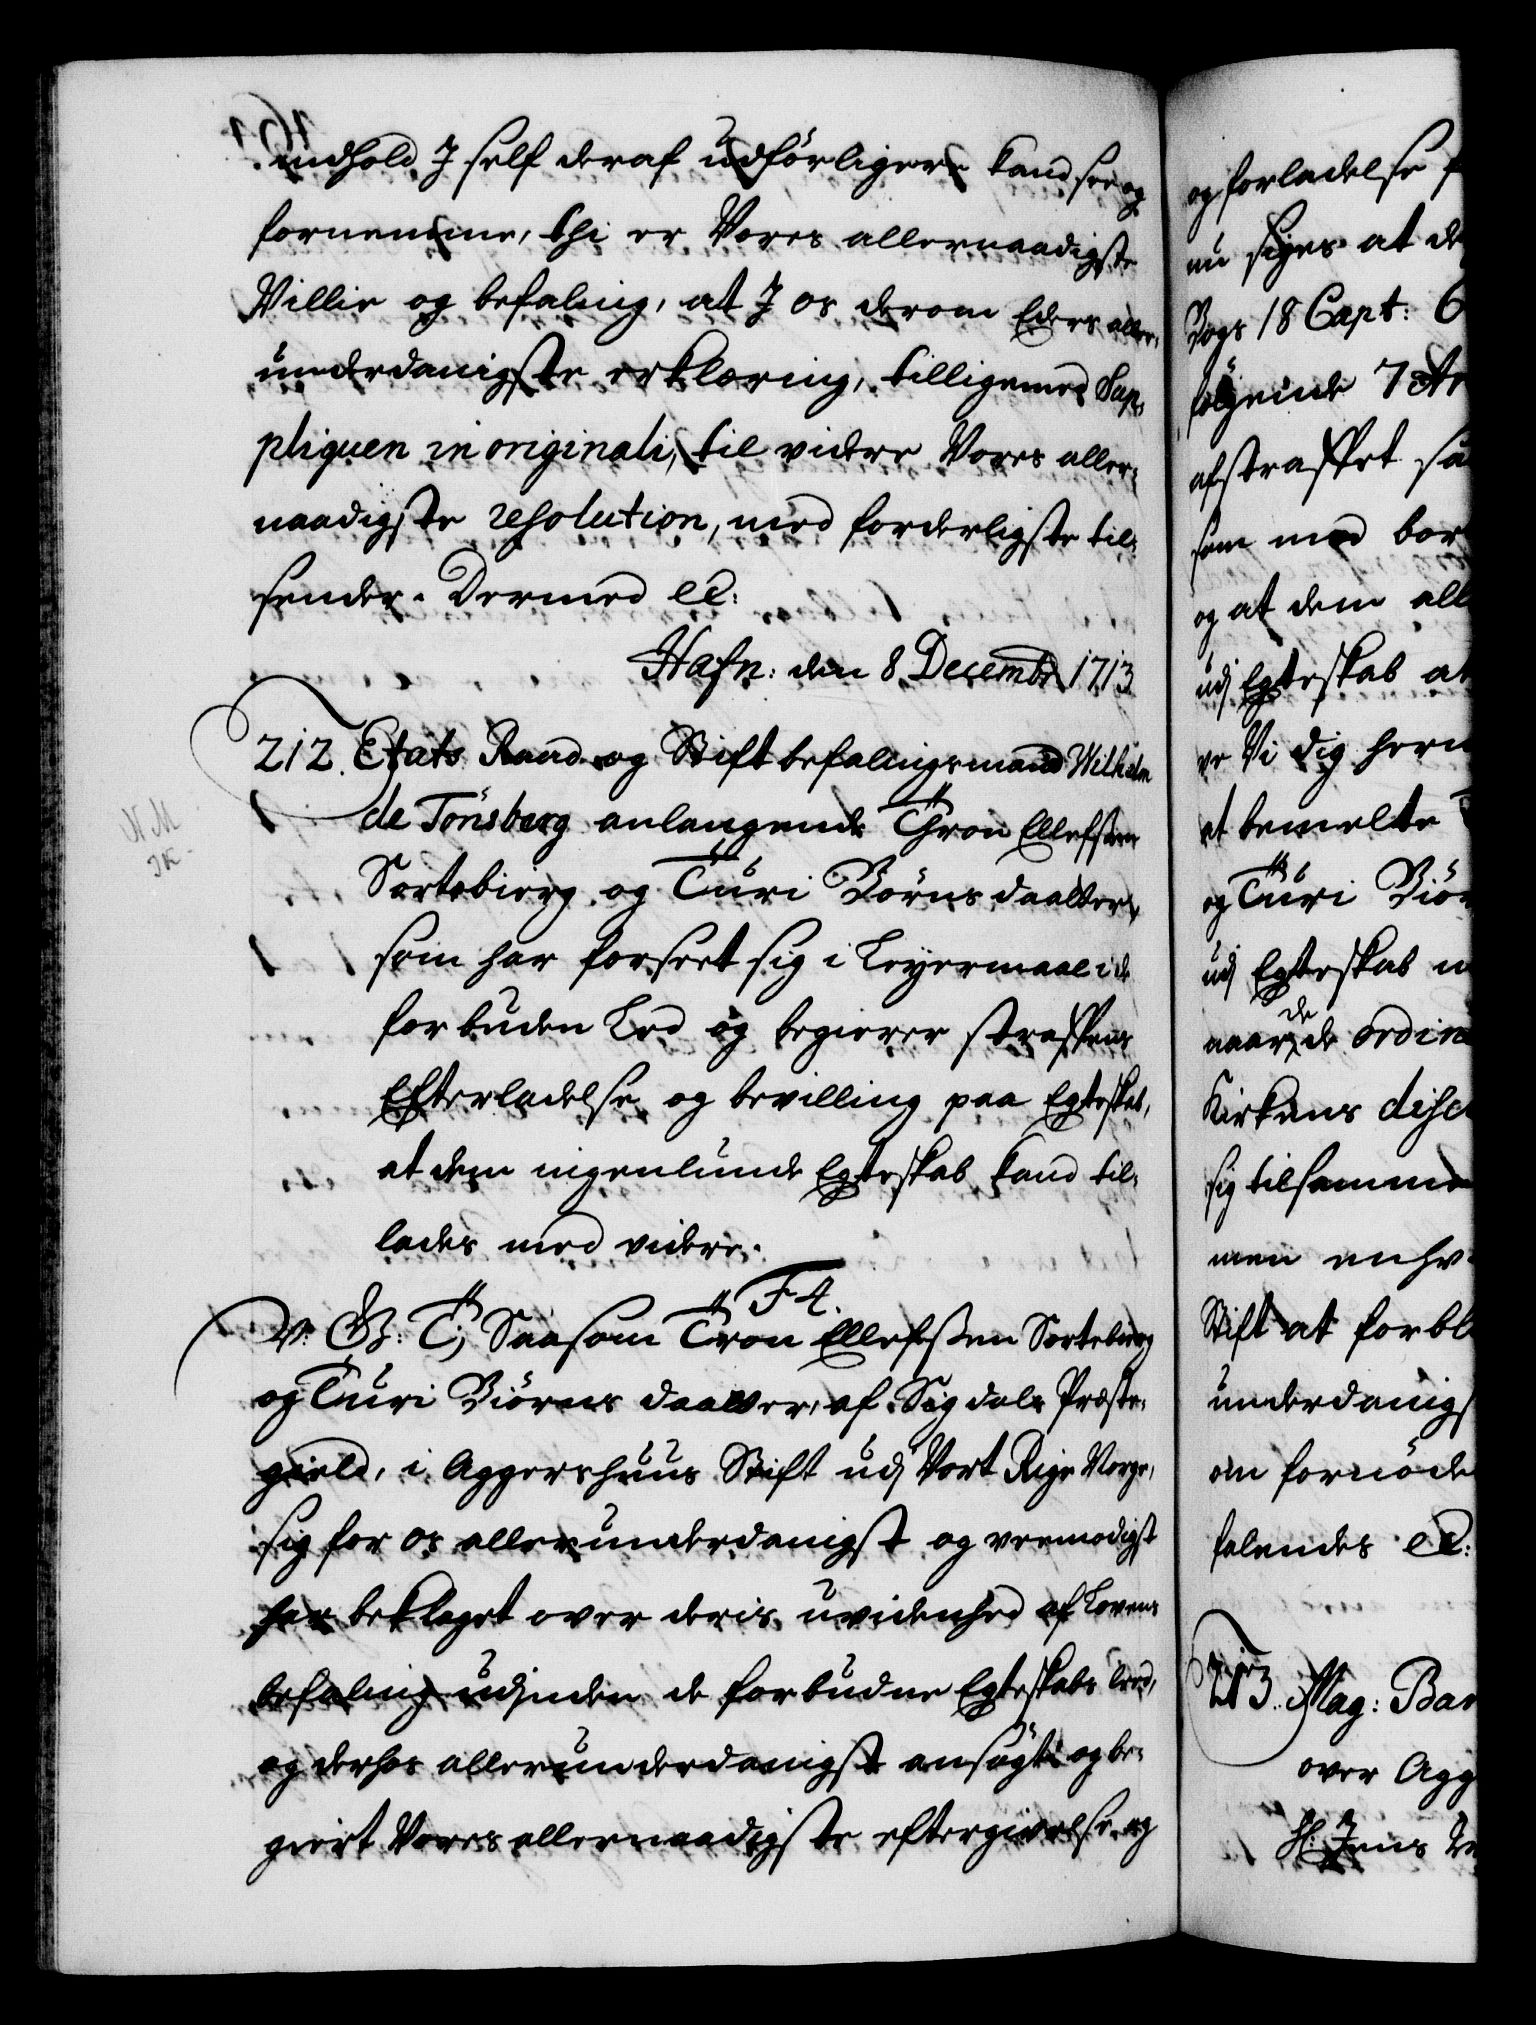 indhold I self deraf udförligere kand see og
fornemme, thi er Vores allernaadigste
Villie og befaling, at I os derom Eders aller,,
underdanigste erklæring, tilligemed Sup,,
pliquen in originali, til videre Vores aller,,
naadigste resolution, med forderligste til,,
sender. Dermed ec:
Hafn: den 8 Decembr 1713
212. Etats Raad og Stiftbefalingsmand Wilhelm
de Tönsberg anlangende Thron Ellefssen
Sortebierg og Turi Biörns daatter,
som har forseet sig i Leyermaal i de
forbuden Led og begierer straffens
Efterladelse og bevilling paa Egteskab,
at dem ingenlunde Egteskab kand til,,
lades med videre.
F 4.
V: G: T; Saasom Tron Ellefssen Sortebierg
og Turi Biörns daatter, af Sigdals Præste,,
gield, i Aggershuus Stift udj Vort Rige Norge,
sig for os allerunderdanigst og veemodigst
har beklaget over deris uvidenhed af Lovens
befaling udjnden de forbudne Egteskabs leed,
og derhos allerunderdanigst ansögt og be,,
giert Vores allernaadigste eftergivelse og
og forladelse
nu siges at de
Bogs 18 Capt: 6
følgende 7 Ar
afstraffet saa
som med bor
og at dem all
udj Egteskab at
er Vi dig hern
at bemelte
og Turi Biör
udj Egteskab
naar de de ordin
Kirkens disc
sig tilsammen
men enhv
Stift at forbl
underdanigs
om fornöde
falendes ec:
213. Mag: Bar
over Agg
H: Jens